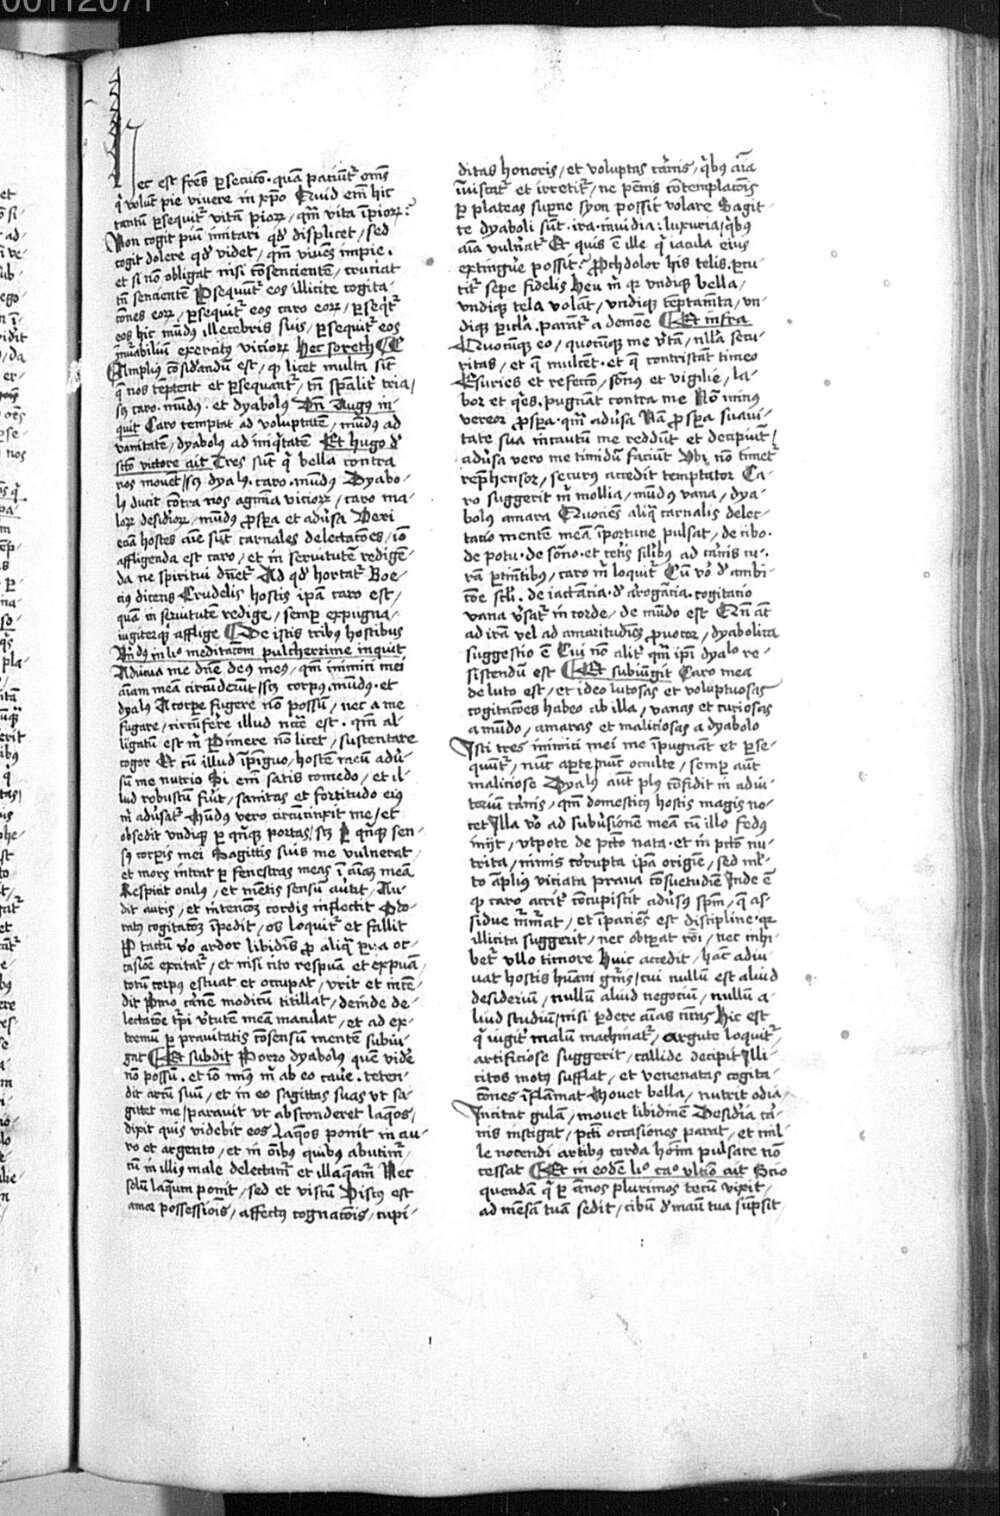 00112071
ec est fr̄es ꝑsecuto. quā paciunt̉ om̄s
q̇ volūt pie vivere in xp̄o Quid em̄ hic
tantū ꝑsequit̉ vitā pioꝝ / qm̄ vita īpioꝝ?
Non cogit piū imitari qd̓ displicet / sed
cogit dolere qd̓ videt / qm̄ viuēs impie.
et si nō obligat nisi cōsencientē / cruciat
tn̄ sencientē Ꝑsequūt̉ eos illicite cogita-
cōnes eoꝝ / ꝑsequit̉ eos caro eoꝝ / ꝑseqt̉
eos hic mūdꝰ illecebris suis / ꝑsequit̉ eos
īnuabiliū exercitꝰ vicioꝝ Hec soreth
Amplius cōsid̓andū est / ꝙ licet multa sīt
q̄ nos tēptent et ꝑsequant̉ / tn̄ spālit̉ tria /
sꝫ caro. mūdꝰ. et dyabolꝰ Vn̄ Augꝰ in-
quit Caro temptat ad voluptatē / mūdꝰ ad
vanitatē / dyabolꝰ ad iniq̇tatē Et hugo d̓
scto victore ait Tres sūt q̇ bella contra
nos mouēt / sꝫ dyalꝰ. caro. mūdꝰ Dyabo-
lꝰ ducit cōtra nos agmīa vicioꝝ / caro ma-
loꝝ desidioꝝ / mūdꝰ ꝓspa et adūsa Veri
eciā hostes aīe sūt carnales delectacōes / iō
affligenda est caro / et in seruitutē redigē-
da ne spiritui dn̄et̉ Ad qd̓ hortat̉ Boe-
ciꝰ dicens Crudelis hostis ipā caro est /
quā in seruitutē redige / semꝑ expugna /
iugiterq̓ afflige De istis tribus hostibus
meditacom pulcherrime inquit
Adiuua me dn̄e deꝰ meꝰ / qm̄ inimici mei
aīam meā circūderūt / sꝫ corpꝰ. mūdꝰ. et
dyalꝰ A corpe fugere non possū / nec a me
fugare / circūferre illud nc̄cē est. qm̄ al-
ligatū est m̄ Ꝑimere nō licet / sustentare
cogor Et cū illud īpīguo / hostē meū adū-
sū me nutrio Si em̄ satis comedo / et il-
lud robustū fīt / sanitas et fortitudo eiꝰ
m̄ adūsat̉ Mūdꝰ vero circūcinxit me / et
obsedit vndiq̓ ꝑ qnq̓ portas / sꝫ ꝑ qnq̓ sen-
sꝰ corpis mei Sagittis suis me vulnerat /
et mors intrat ꝑ fenestras meas ī aīaꝫ meā
Respicit oculꝰ / et mentis sensū auītit / Au-
dit auris / et intencōꝫ cordis inflectit Odo-
ratꝰ cogitacōꝫ īpedit / os loquit̉ et fallit
Ꝑ tactū vo ardor libidīs ꝓ aliq̄ ꝑua oc-
casiōe excitat̉ / et nisi cito respuā et expuā /
totū corpꝰ estuat et occupat / vrit et incē-
dit Pimo carnē modicū titillat / deinde de-
lectacōe tpi v̓tutē meā maculat / et ad ex-
tremū ꝑ prauitatis cōsensū mentē subiu-
gat Et subdit Porro dyabolꝰ quē videre
nō possū. et iō minꝰ m̄ ab eo cauere. teten-
dit arcū suū / et in eo sagittas suas vt sa-
gittet me / parauit vt absconderet laqos /
dixit quis videbit eos Laqos ponit in au-
ro et argento / et in oībus quibus abutim̉ /
cū in illis male delectam̉ et illaqam̉ Nec
solū laqum ponit / sed et viscū Viscꝰ est
amor possessiōis / affectꝰ cognacōis / cupi-
ditas honoris / et voluptas carnis / q̇bꝰ aīa
īuiscat̉ et irretit̉ / ne pēnis cōtemplacōis
ꝑ plateas supne syon possit volare Sagit-
te dyaboli sūt. ira. inuidia. luxuria / q̇bꝰ
aīa vulnat̉ Et quis ē ille q̇ iacula eius
extingue possit? Ꝓchdolor his telis. ꝑcu-
tit̉ sepe fidelis Heu m̄ qꝛ vndiq̓ bella /
vndiq̓ tela volāt / vndiq̓ teptamīta / vn-
diq̓ picla. parāt̉ a demōe Et infra
Quocūq̓ eo / quocūq̓ me v̓tā / nlla secu-
ritas / et q̄ mulcēt. et q̄ contristāt timeo
Esuries et refectō / sōnꝰ et vigilie / la-
bor et q̇es. pugnāt contra me Nō minꝰ
vereor ꝓspa. qm̄ adūsa Nā ꝓspa suaui-
tate sua incautū me reddūt et decipiūt /
adūsa vero me timidū faciūt Vbi nō timet̉
rephensor / securꝰ accedit temptator Ca-
ro suggerit m̄ mollia / mūdꝰ vana / dya-
bolꝰ amara Quociēs aliq̄ carnalis delec-
tatio mentē meā īportune pulsat / de cibo.
de potu. de sōno. et cetis silibꝰ ad carnis cu-
rā ptinētibus / caro m̄ loquit̉ Cū vo d̓ ambi-
cōe scli. de iactācia. d̓ arogācia. cogitatio
vana v̓sat̉ in corde / de mūdo est Qn̄ aūt
ad irā vel ad amaritudinēs ꝓuocor / dyabolica
suggestio ē Cui nō alit̉ qm̄ ipi dyalo re-
sistendū est Et subiūgit Caro mea
de luto est / et ideo lutosas et voluptuosas
cogitacōes habeo ab illa / vanas et curiosas
a mūdo / amaras et maliciosas a dyabolo
Isti tres inimici mei me īpugnāt et ꝑse-
quūt̉ / nūc apte / nūc occulte / semꝑ aūt
maliciose Dyalꝰ aūt plꝰ cōfidit in adiu-
toriū carnis / qm̄ domesticꝰ hostis magis no-
cet Illa vo ad subūsionē meā cū illo fedꝰ
inijt / vtpote de pctō nata. et in pctō nu-
trita / nimis corupta ipā origīe / sed ml̓-
to āplius viciata praua cōsuetudīe Inde ē
ꝙ caro acrit̉ cōcupiscit adūsus spm̄ / q̄ as-
sidue murmurat / et īpaciēs est discipline. qꝛ
illicita suggerit / nec obtꝑat rōi / nec inhi-
bet̉ vllo timore Huic accedit / hāc adiu-
uat hostis hūani gn̄is / cui nullū est aliud
desideriū / nullū aliud negociū / nullū a-
liud studiū / nisi ꝑdere aīas n̄ras Hic est
q̇ iugit̉ malū machinat̉ / argute loquit̉ /
artificiose suggerit / callide decipit Illi-
citos motꝰ sufflat / et venenatas cogita-
cōnes īflāmat Mouet bella / nutrit odia /
Incitat gulā / mouet libidinē Desidia car-
nis instigat / pcti occasiones parat / et mil-
le nocendi artibꝰ corda hoīm pulsare nō
cessat Et in eodē li̊ cå vltīo ait Scio
quendā q̇ ꝑ annos plurimos tecū vixit /
ad mēsā tuā sedit / cibū d̓ manu tua sūpsit